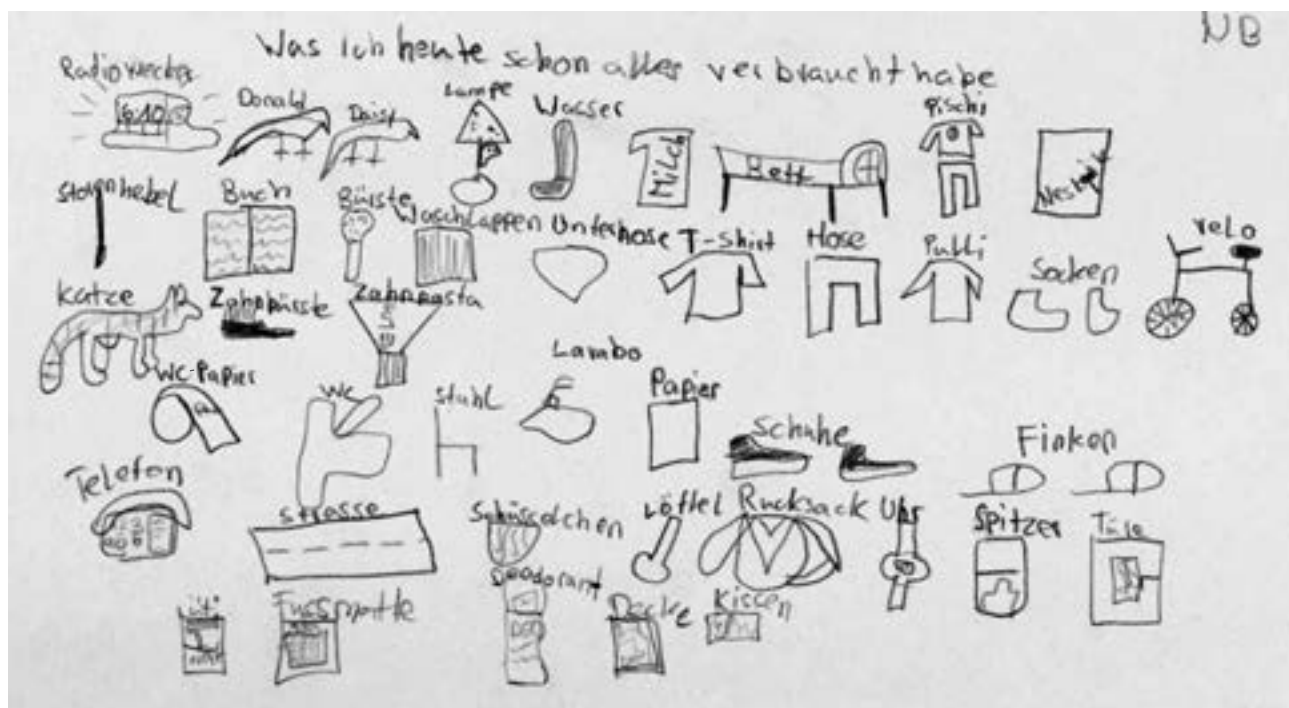 NB
Was ich heute schon alles verbraucht habe
Radiowecker
6:10
Donald
Daisy
Lampe
Wasser
Milch
Bett
Pischi
Storenhebel
Buch
Bürste
Waschlappen
Unterhose
T-Shirt
Hose
Pulli
Socken
Velo
Katze
Zahnbürste
Zahnpasta
WC-Papier
WC
Stuhl
Lavabo
Papier
Schuhe
Finken
Telefon
Strasse
Schüsselchen
Löffel
Rucksack
Uhr
Spitzer
Türe
Fussmatte
Deodorant
DEO
Decke
Kissen